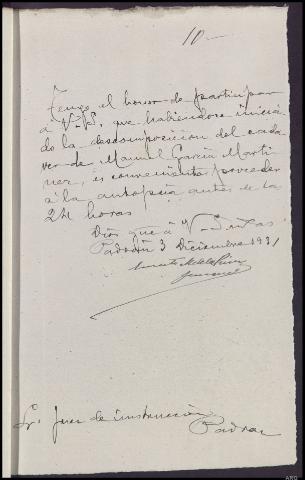 10
Tengo el honor de participar
á V. S. que habiendose inicia
do la descomposicion del cada
ver de Manuel Garcia Marti
nez, es conveniente proceder
á la autopsia antes de la
24 horas
Dios gue á V.
3 Diciembre 1931
Sr. Juez de instrucción